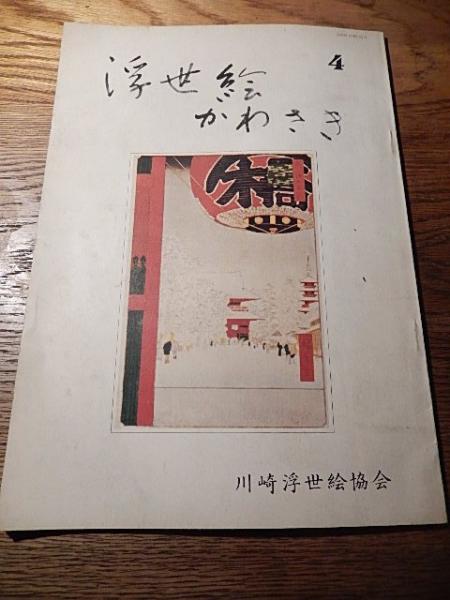 浮世絵
4
かわさき
川崎浮世絵協会